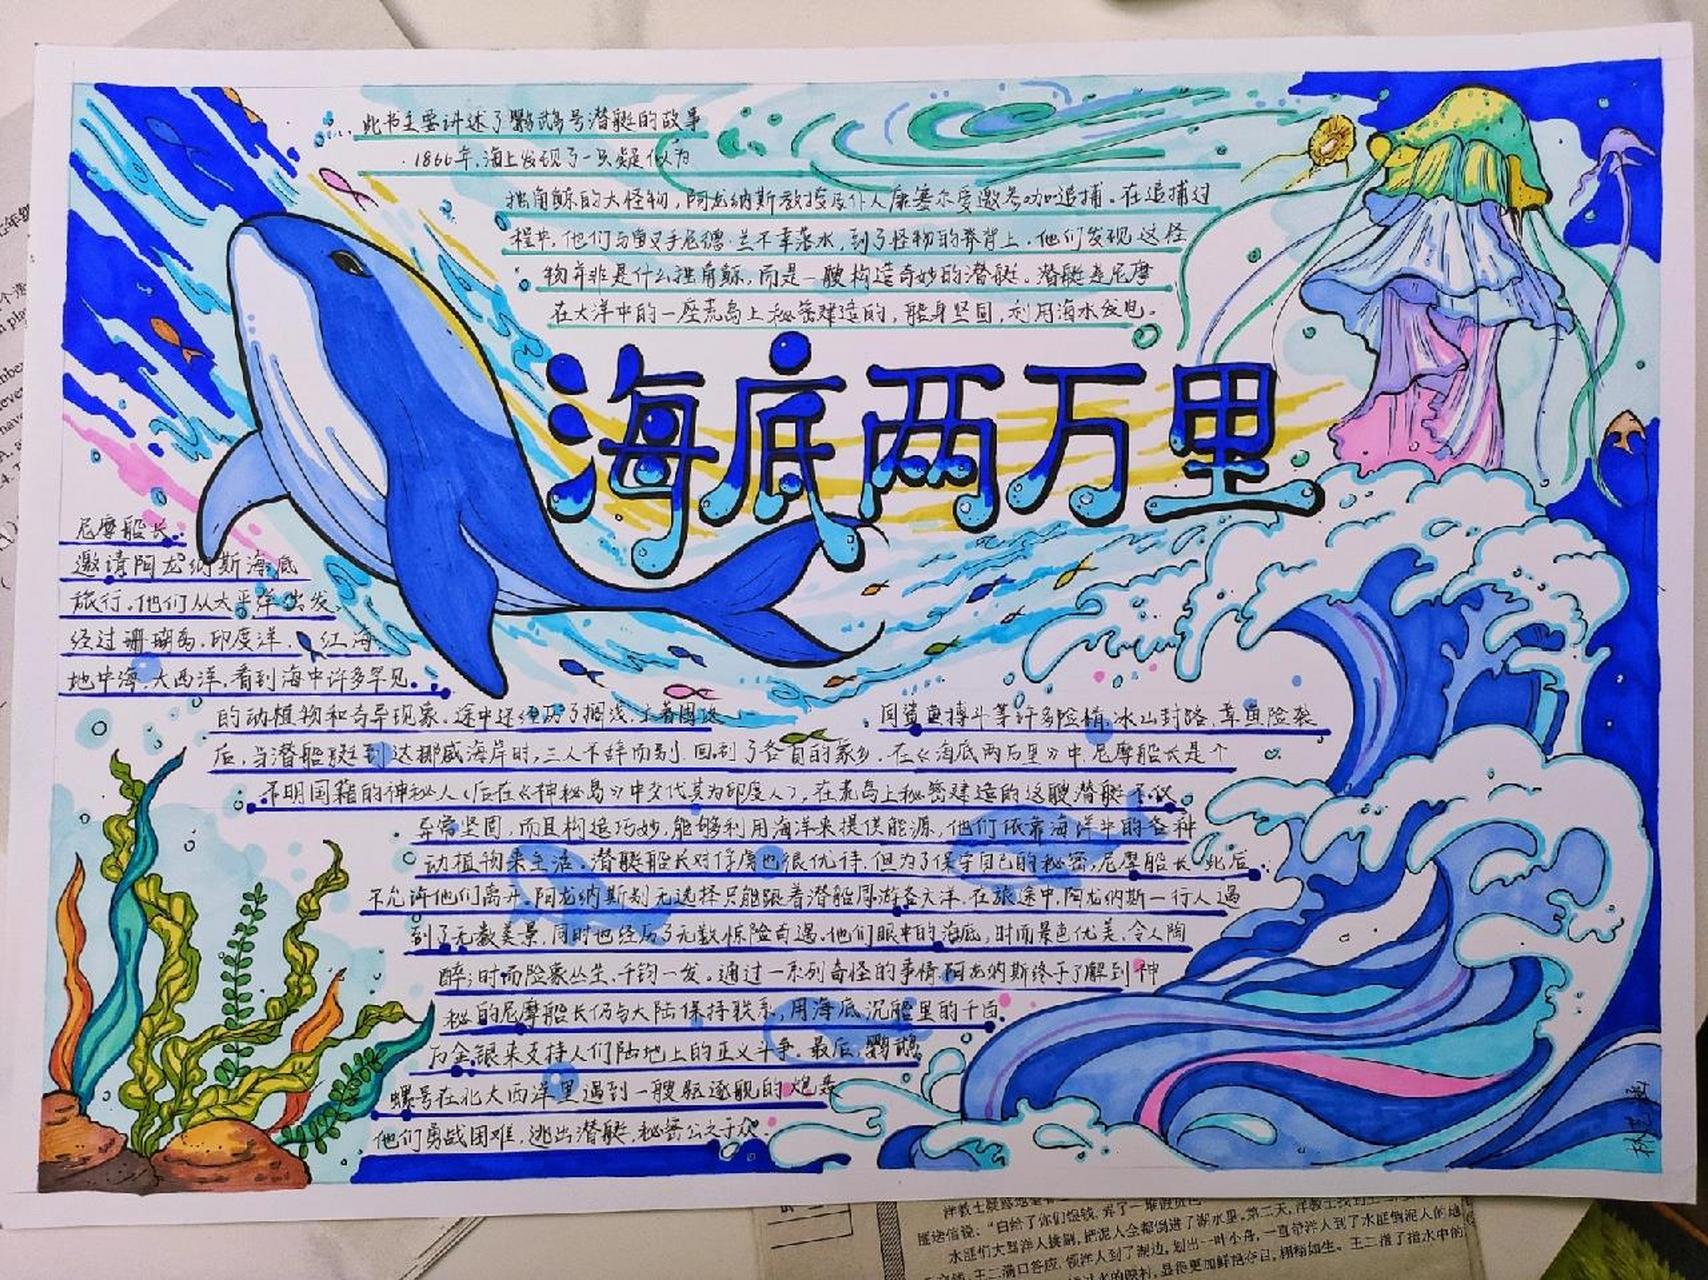 此书主要讲述了鹦鹉号潜艇的故事
1866年,海上发现了一只疑似为
独角鲸的大怪物,阿龙纳斯教授及仆人康塞尔受邀参加追捕。在追捕过
程中,他们与鱼叉手尼德·兰不幸落水,到了怪物的脊背上。他们发现这怪
物并非是什么独角鲸,而是一艘构造奇妙的潜艇。潜艇是尼摩
在大洋中的一座荒岛上秘密建造的,船身坚固,利用海水发电。
海底两万里
尼摩船长
邀请阿龙纳斯海底
旅行。他们从太平洋出发,
经过珊瑚岛,印度洋,红海,
地中海,大西洋,看到海中许多罕见
的动植物和奇异现象。途中还经历了搁浅,土著围
同鲨鱼搏斗等许多险情,冰山封路,章鱼险袭
后,当潜船艇到达挪威海岸时,三人不辞而别,回到了各自的家乡。在《海底两万里》中,尼摩船长是个
不明国籍的神秘人(后在《神秘岛》中交代其为印度人),在荒岛上秘密建造的这艘潜艇不仅
异常坚固,而且构造巧妙,能够利用海洋来提供能源,他们依靠海洋中的各种
动植物来生活。潜艇船长对俘虏也很优待,但为了保守自己的秘密,尼摩船长此后
不允许他们离开。阿龙纳斯别无选择只能跟着潜船周游各大洋。在旅途中,阿龙纳斯一行人遇
到了无数美景,同时也经历了无数惊险奇遇。他们眼中的海底,时而景色优美,令人陶
醉;时而险象丛生,千钧一发。通过一系列奇怪的事情,阿龙纳斯终于了解到神
秘的尼摩船长仍与大陆保持联系,用海底沉船里的千百
万金银来支持人们陆地上的正义斗争。最后,鹦鹉
螺号在北大西洋里遇到一艘驱逐舰的炮轰
他们勇战困难,逃出潜艇,秘密公之于众。